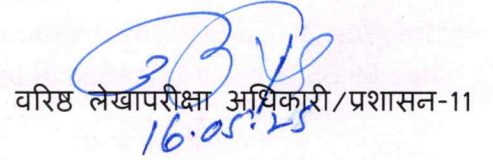 वरिष्ठ लेखापरीक्षा अधिकारी/प्रशासन-11
16.05.25